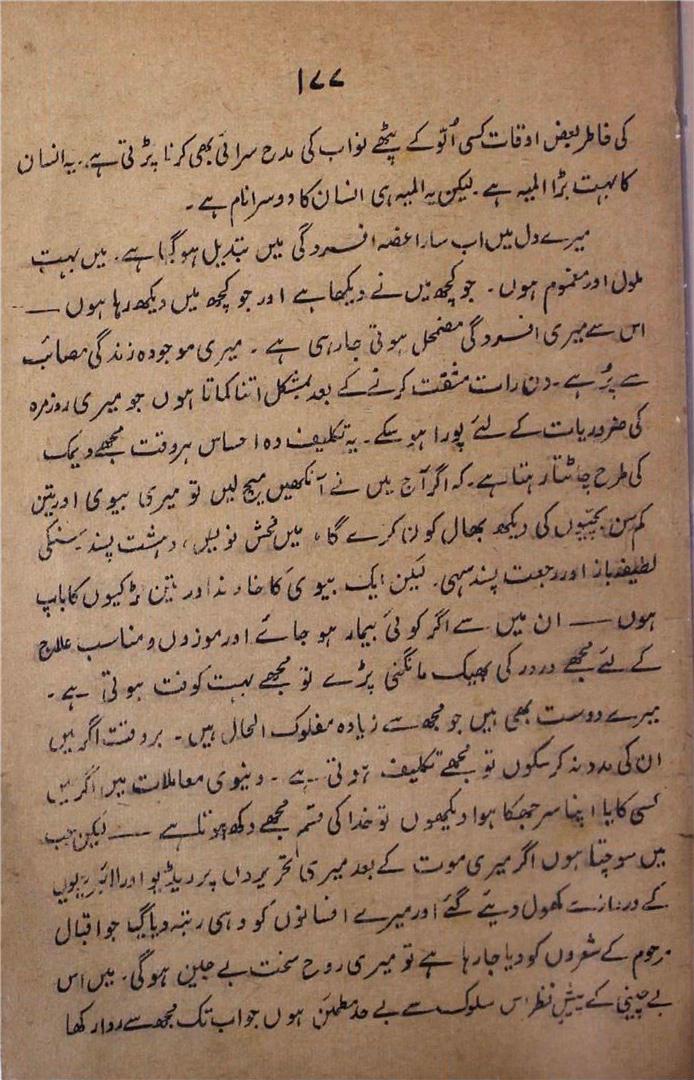 ۱۷۷
کی خاطر بعض اوقات کسی اُلّو کے پٹھے نواب کی مدح سرائی بھی کرنا پڑتی ہے۔ یہ انسان
کا بہت بڑا المیہ ہے۔ لیکن یہ المیہ ہی انسان کا دوسرا نام ہے۔
میرے دل میں اب سارا غصہ افسردگی میں تبدیل ہو گیا ہے۔ میں بہت
ملول اور مغموم ہوں۔ جو کچھ میں نے دیکھا ہے اور جو کچھ میں دیکھ رہا ہوں ——
اس سے میری افسردگی مضمحل ہوتی جا رہی ہے۔ میری موجودہ زندگی مصائب
سے پُر ہے۔ دن رات مشقت کرنے کے بعد بمشکل اتنا کماتا ہوں جو میری روزمرہ
کی ضروریات کے لئے پورا ہو سکے۔ یہ تکلیف دہ احساس ہر وقت مجھے دیمک
کی طرح چاٹتا رہتا ہے۔ کہ اگر آج میں نے آنکھیں میچ لیں تو میری بیوی اور تین
کم سن بچیوں کی دیکھ بھال کون کرے گا۔ میں فحش نویس، دہشت پسند سنکی
لطیفہ باز اور رجعت پسند سہی۔ لیکن ایک بیوی کا خاوند اور تین لڑکیوں کا باپ
ہوں —— ان میں سے اگر کوئی بیمار ہو جائے اور موزوں و مناسب علاج
کے لئے مجھے در در کی بھیک مانگنی پڑے تو مجھے بہت کوفت ہوتی ہے۔
میرے دوست بھی ہیں جو مجھ سے زیادہ مفلوک الحال ہیں۔ بر وقت اگر میں
ان کی مدد نہ کر سکوں تو مجھے تکلیف ہوتی ہے۔ دنیوی معاملات میں اگر میں
کسی کا یا اپنا سر جھکا ہوا دیکھوں تو خدا کی قسم مجھے دکھ ہوتا ہے —— لیکن جب
میں سوچتا ہوں اگر میری موت کے بعد میری تحریروں پر ریڈیو اور لائبریریوں
کے دروازے کھول دیئے گئے اور میرے افسانوں کو وہی رتبہ دیا گیا جو اقبال
مرحوم کے شعروں کو دیا جا رہا ہے تو میری روح سخت بے چین ہوگی۔ میں اس
بے چینی کے پیش نظر اس سلوک سے بے حد مطمئن ہوں جو اب تک مجھ سے روا رکھا